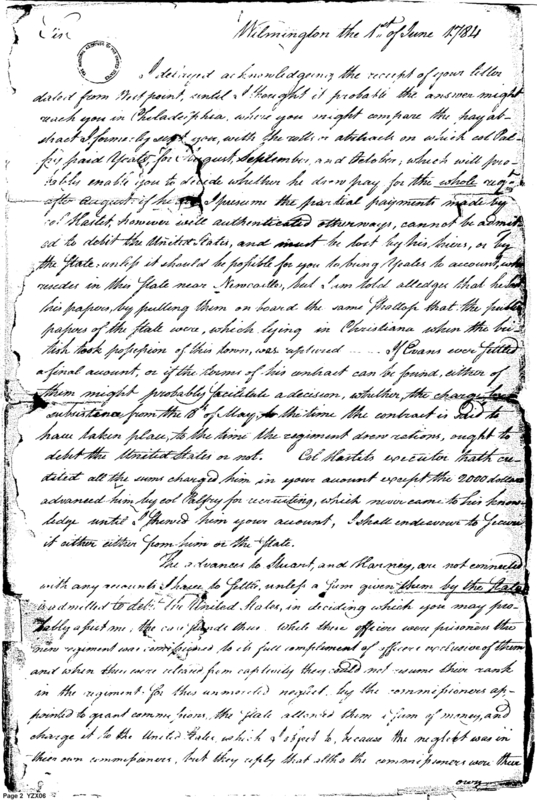 Sir
Wilmington the 1st of June 1784
I delayed acknowledgeing the receipt of your letter
dated from West point, until I thought it probable the answer might
reach you in Philadelphia, where you might compare the pay ab-
stract I formerly sent you, with the rolls or abstracts on which col Pal-
frey paid Yeates, for August, September, and October; which will pro-
bably enable you to decide whether he drew pay for the whole regt
after august; if he I presume the partial payments made by
col Haslet, however well authenticated otherways, cannot be admitt-
ed to debit the United States, and must be lost by his heirs, or by
the State, unless it should be possible for you to bring Yeates to account, who
resides in this State near Newcastle, but I am told alledges that he lost
his papers, by putting them on board the same Shallop that the public
papers of the State were, which lying in Christiana when the bri-
tish took possession of this town, was captured If Evans ever settled
a final account, or if the terms of his contract can be found, either of
them might probably facilitate a decision, whether, the charge for
subsistence from the 8th of May, to the time the contract is said to
have taken place, to the time the regiment drew rations, ought to
debit the United States or not. Col Haslets executor hath cre-
dited all the sums charged him in your account except the 2000 dollars
advanced him by col Palfry for recruiting, which never came to his know-
ledge until I shewed him your account, I shall endeavour to secure
it either either from him or the State.
The advances to Stuart, and Harney, are not connected
with any accounts I have to settle, unless a sum given them by the State
is admitted to debit the United States, in deciding which you may pro-
bably assist me, the case stands thus. While these officers were prisoners the
new regiment was commissioned to its full compliment of officers exclusive of them
and when they were released from captivity they could not resume their rank
in the regiment. for this unmerited neglect by the commissioners ap-
pointed to grant commissions, the State allowed them a sum of money, and
charge it to the United States, which I object to, because the neglect was in
their own commissioners, but they reply that altho the commissioners were their
own
Page 2 YZX06